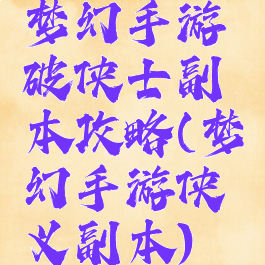 梦幻手游
破侠士副
本攻略(梦
幻手游侠
义副本)